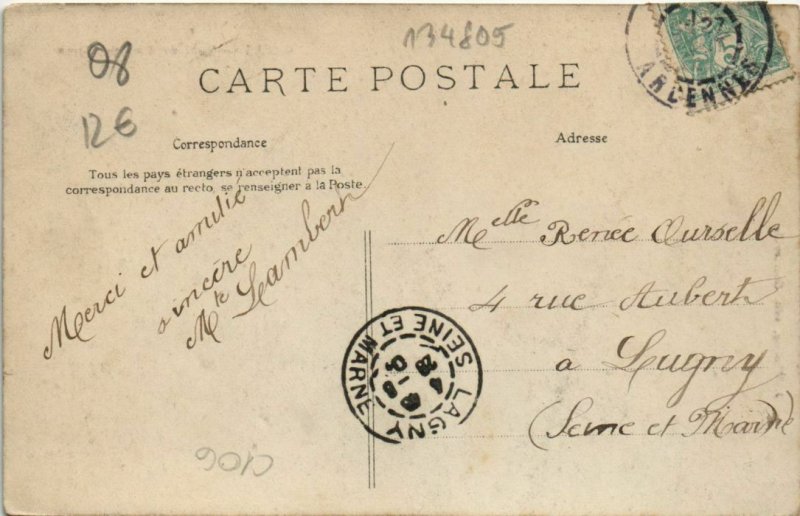 134805
08
12€
CARTE POSTALE
ARDENNES
Correspondance
Adresse
Tous les pays étrangers n'acceptent pas la
correspondance au recto, se renseigner à la Poste.
Merci et amitié
sincère
Mte Lambert
Melle Renée Ourselle
4 rue Aubert
a Lugny
(Seine et Marne)
LAGNY
SEINE ET MARNE
C106